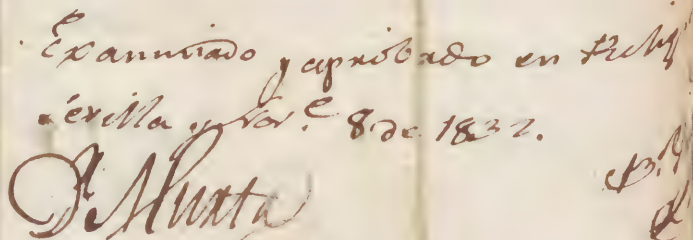 Examinado y aprobado en Relig
Sevilla y Nov.e 8 de 1832.